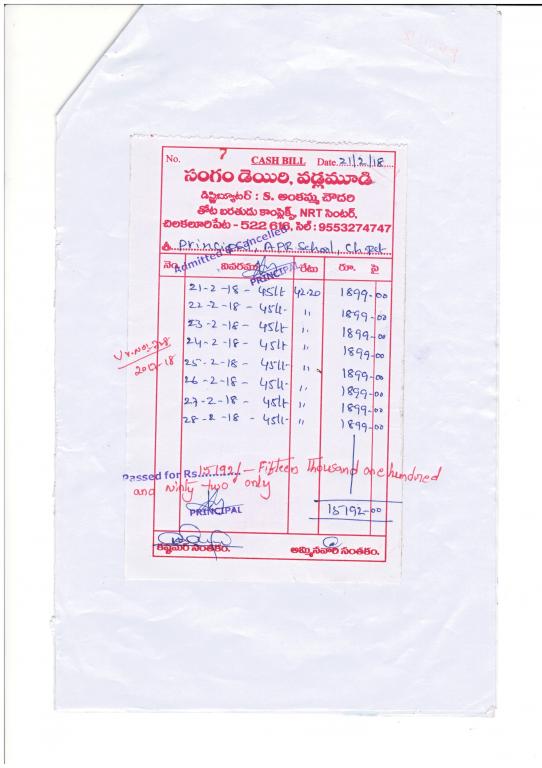 No. 7 CASH BILL Date 21/2/18
సంగం డెయిరి, వడ్లమూడి
డిస్ట్రిబ్యూటర్ : S. అంకమ్మ చౌదరి
తోట బరతుడు కాంప్లెక్స్, NRT సెంటర్,
చిలకలూరిపేట - 522 616, సెల్ : 9553274747
శ్రీ Principal, APR School, Ch.pet
Admitted & Cancelled
PRINCIPAL
నెం వివరము రేటు రూ. పై
21-2-18 - 45lt 42.20 1899-00
22-2-18 - 45lt " 1899-00
23-2-18 - 45lt " 1899-00
24-2-18 - 45lt " 1899-00
Vr.No:
2017-18
25-2-18 - 45lt " 1899-00
26-2-18 - 45lt " 1899-00
27-2-18 - 45lt " 1899-00
28-2-18 - 45lt " 1899-00
Passed for Rs. 15192/- Fifteen Thousand one hundred
and Ninty two only
PRINCIPAL
15192-00
కస్టమర్ సంతకం. అమ్మినవారి సంతకం.